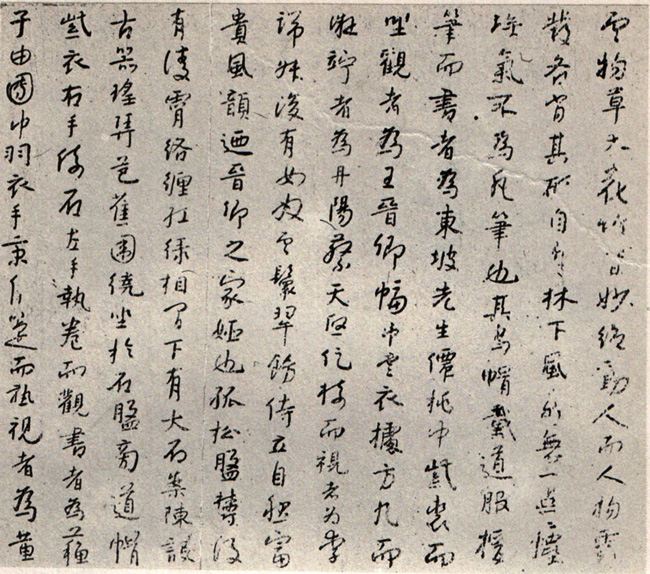 雲物草木花竹皆妙絕動人而人物
發各肖其形自有林下風味無一點塵
埃氣不為凡筆也其烏帽道服援
筆而書者為東坡先生僊桃巾紫裘而
坐觀者為王晉卿幅巾青衣據方几而
凝竚者為丹陽蔡天啟捉椅而視者為李
端叔後有女奴雲鬟翠飾侍立自然富
貴風韻迺晉卿之家姬也孤松盤鬱後
有凌霄絡纏紅綠相間下有大石案陳設
古器瑤琴芭蕉圍繞坐於石盤旁道帽
紫衣右手倚石左手執卷而觀書者為蘇
子由團巾羽衣手秉箑而孰視者為黃